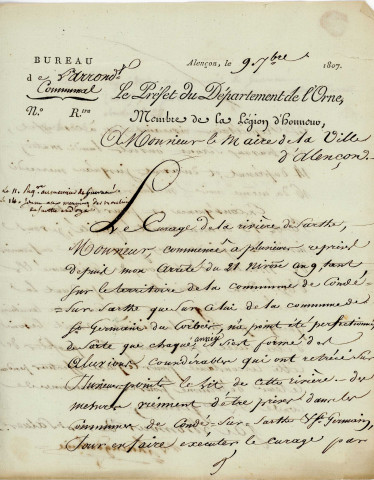 BUREAU
de l'arrondt
Communal
N.o R.tre
Alençon, le 9 7bre 1807.
Le Préfet du Département de l'Orne,
Membre de la Légion d'honneur,
A Monsieur le Maire de la Ville
d'Alençon
Le Curage de la rivière de Sarthe,
Monsieur commencé a plusieurs reprises
depuis mon arrêté du 21 Nivose an 9, tant
sur le territoire de la commune de Condé-
Sur-Sarthe que sur celui de la commune de
St Germain du Corbéis, n'a point été perfectionné
de sorte que chaque année il s'est formé des
aluvions considérables qui ont retréci sur
plusieurs points le lit de cette rivière - des
mesures viennent d'être prises dans les
communes de Condé-Sur-Sarthe & St Germain,
pour en faire executer le curage par